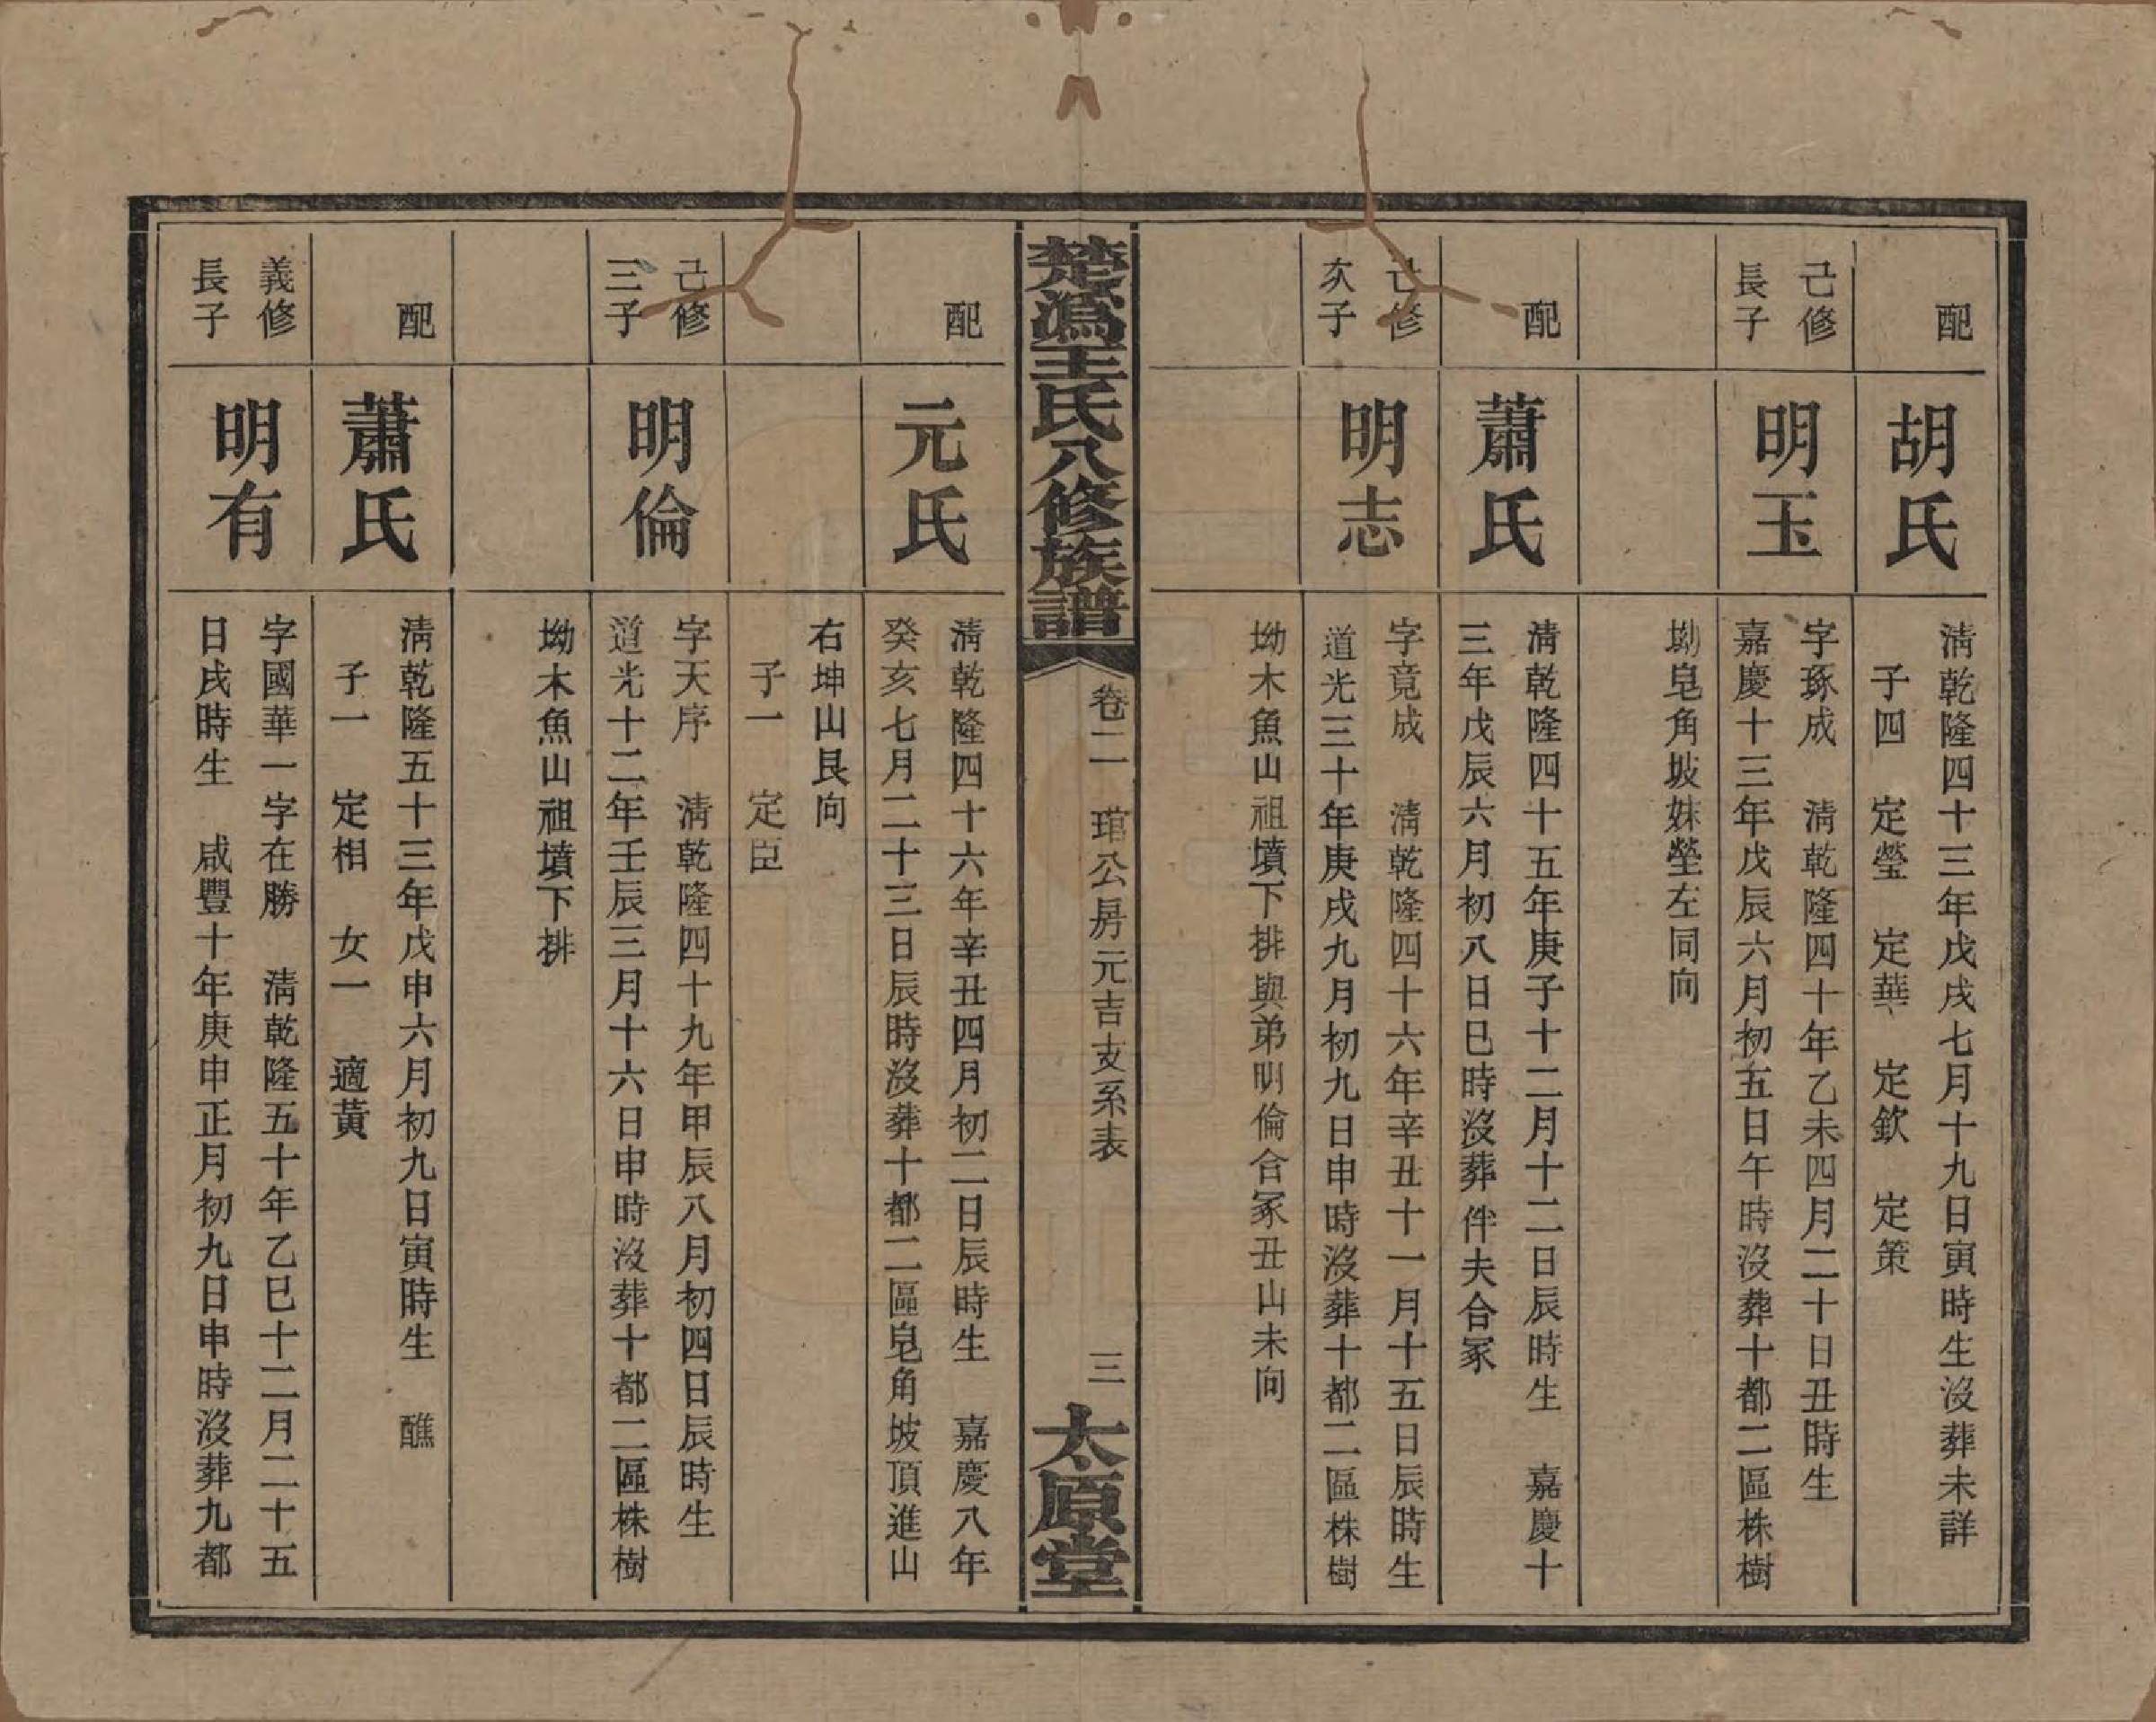 配
胡氏
清乾隆四十三年戊戌七月十九日寅時生沒葬未詳
子四　定瑩　定華　定欽　定策
己修
長子
明玉
字琢成　清乾隆四十年乙未四月二十日丑時生
嘉慶十三年戊辰六月初五日午時沒葬十都二區株樹
坳皂角坡妹塋左同向
配
蕭氏
清乾隆四十五年庚子十二月十二日辰時生　嘉慶十
三年戊辰六月初八日巳時沒葬伴夫合冢
己修
次子
明志
字竟成　清乾隆四十六年辛丑十一月十五日辰時生
道光三十年庚戌九月初九日申時沒葬十都二區株樹
坳木魚山祖墳下排與弟明倫合冢丑山未向
楚溈王氏八修族譜
卷二　琯公房元吉支系表
三
太原堂
配
元氏
清乾隆四十六年辛丑四月初二日辰時生　嘉慶八年
癸亥七月二十三日辰時沒葬十都二區皂角坡頂進山
右坤山艮向
子一　定臣
己修
三子
明倫
字天序　清乾隆四十九年甲辰八月初四日辰時生
道光十二年壬辰三月十六日申時沒葬十都二區株樹
坳木魚山祖墳下排
配
蕭氏
清乾隆五十三年戊申六月初九日寅時生　醮
子一　定相　女一　適黃
義修
長子
明有
字國華一字在勝　清乾隆五十年乙巳十二月二十五
日戌時生　咸豐十年庚申正月初九日申時沒葬九都